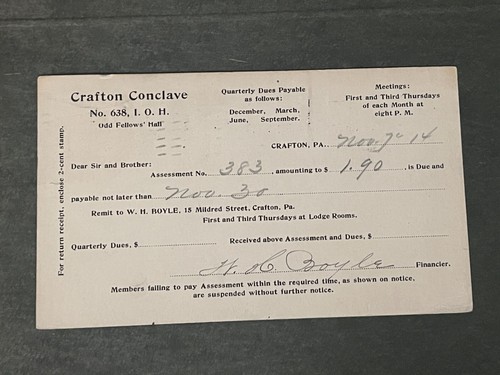 Crafton Conclave
No. 638, I. O. H.
Odd Fellows' Hall
Quarterly Dues Payable
as follows:
December, March,
June, September.
Meetings:
First and Third Thursdays
of each Month at
eight P. M.
CRAFTON, PA., Nov. 7" 14
Dear Sir and Brother:
Assessment No. 383, amounting to $ 1.90, is Due and
payable not later than Nov. 30
Remit to W. H. BOYLE, 15 Mildred Street, Crafton, Pa.
First and Third Thursdays at Lodge Rooms.
Quarterly Dues, $ Received above Assessment and Dues, $
W. H. Boyle Financier.
Members failing to pay Assessment within the required time, as shown on notice,
are suspended without further notice.
For return receipt, enclose 2-cent stamp.